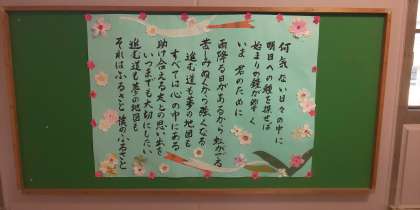 何気ない日々の中に
明日への鍵を探せば
始まりの鐘が響く
いま君のために
雨降る日があるから虹が出る
苦しみぬくから強くなる
進む道も夢の地図も
すべては心の中にある
助け合える友との思い出を
いつまでも大切にしたい
進む道も夢の地図も
それはふるさと僕のふるさと